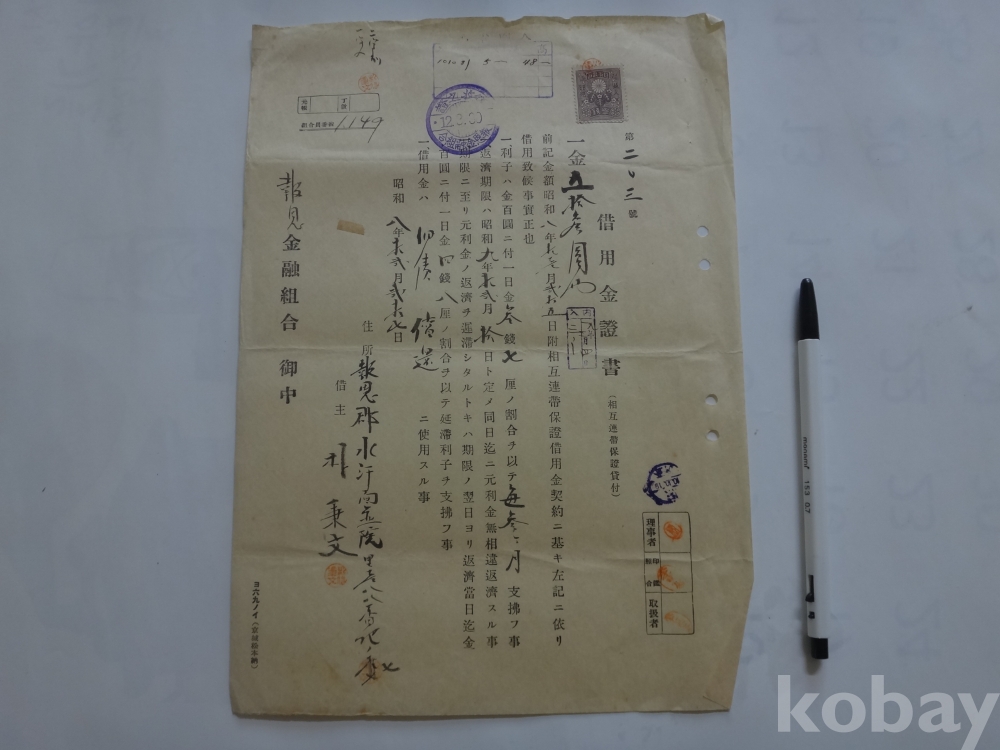 第二〇三號
借用金證書 (相互連帶保證貸付)
一金五拾參圓也
前記金額昭和八年拾貳月貳拾五日附相互連帶保證借用金契約ニ基キ左記ニ依リ
借用致候事實正也
一利子ハ金百圓ニ付一日金參錢七厘ノ割合ヲ以テ每參ヶ月支拂フ事
返濟期限ハ昭和九年拾貳月拾日ト定メ同日迄ニ元利金無相違返濟スル事
期限ニ至リ元利金ノ返濟ヲ遲滯シタルトキハ期限ノ翌日ヨリ返濟當日迄金
百圓ニ付一日金四錢八厘ノ割合ヲ以テ延滯利子ヲ支拂フ事
一借用金ハ舊債償還ニ使用スル事
昭和八年拾貳月貳拾七日
住所報恩郡水汗面
借主朴秉文
報恩金融組合 御中
組合員番號 1.149
12.3.30
理事者
印鑑
照合
取扱者
ヨ六九ノイ
monami 153 0.7
kobay